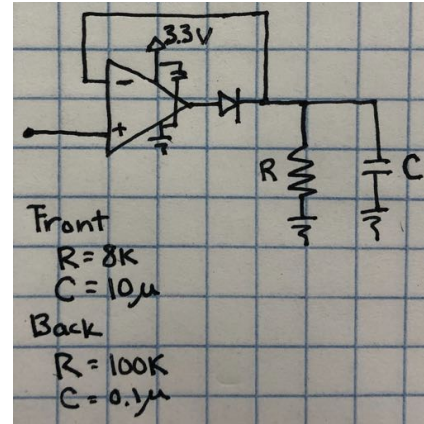 3.3V
-
+
R
C
Front
R = 8K
C = 10µ
Back
R = 100K
C = 0.1µ